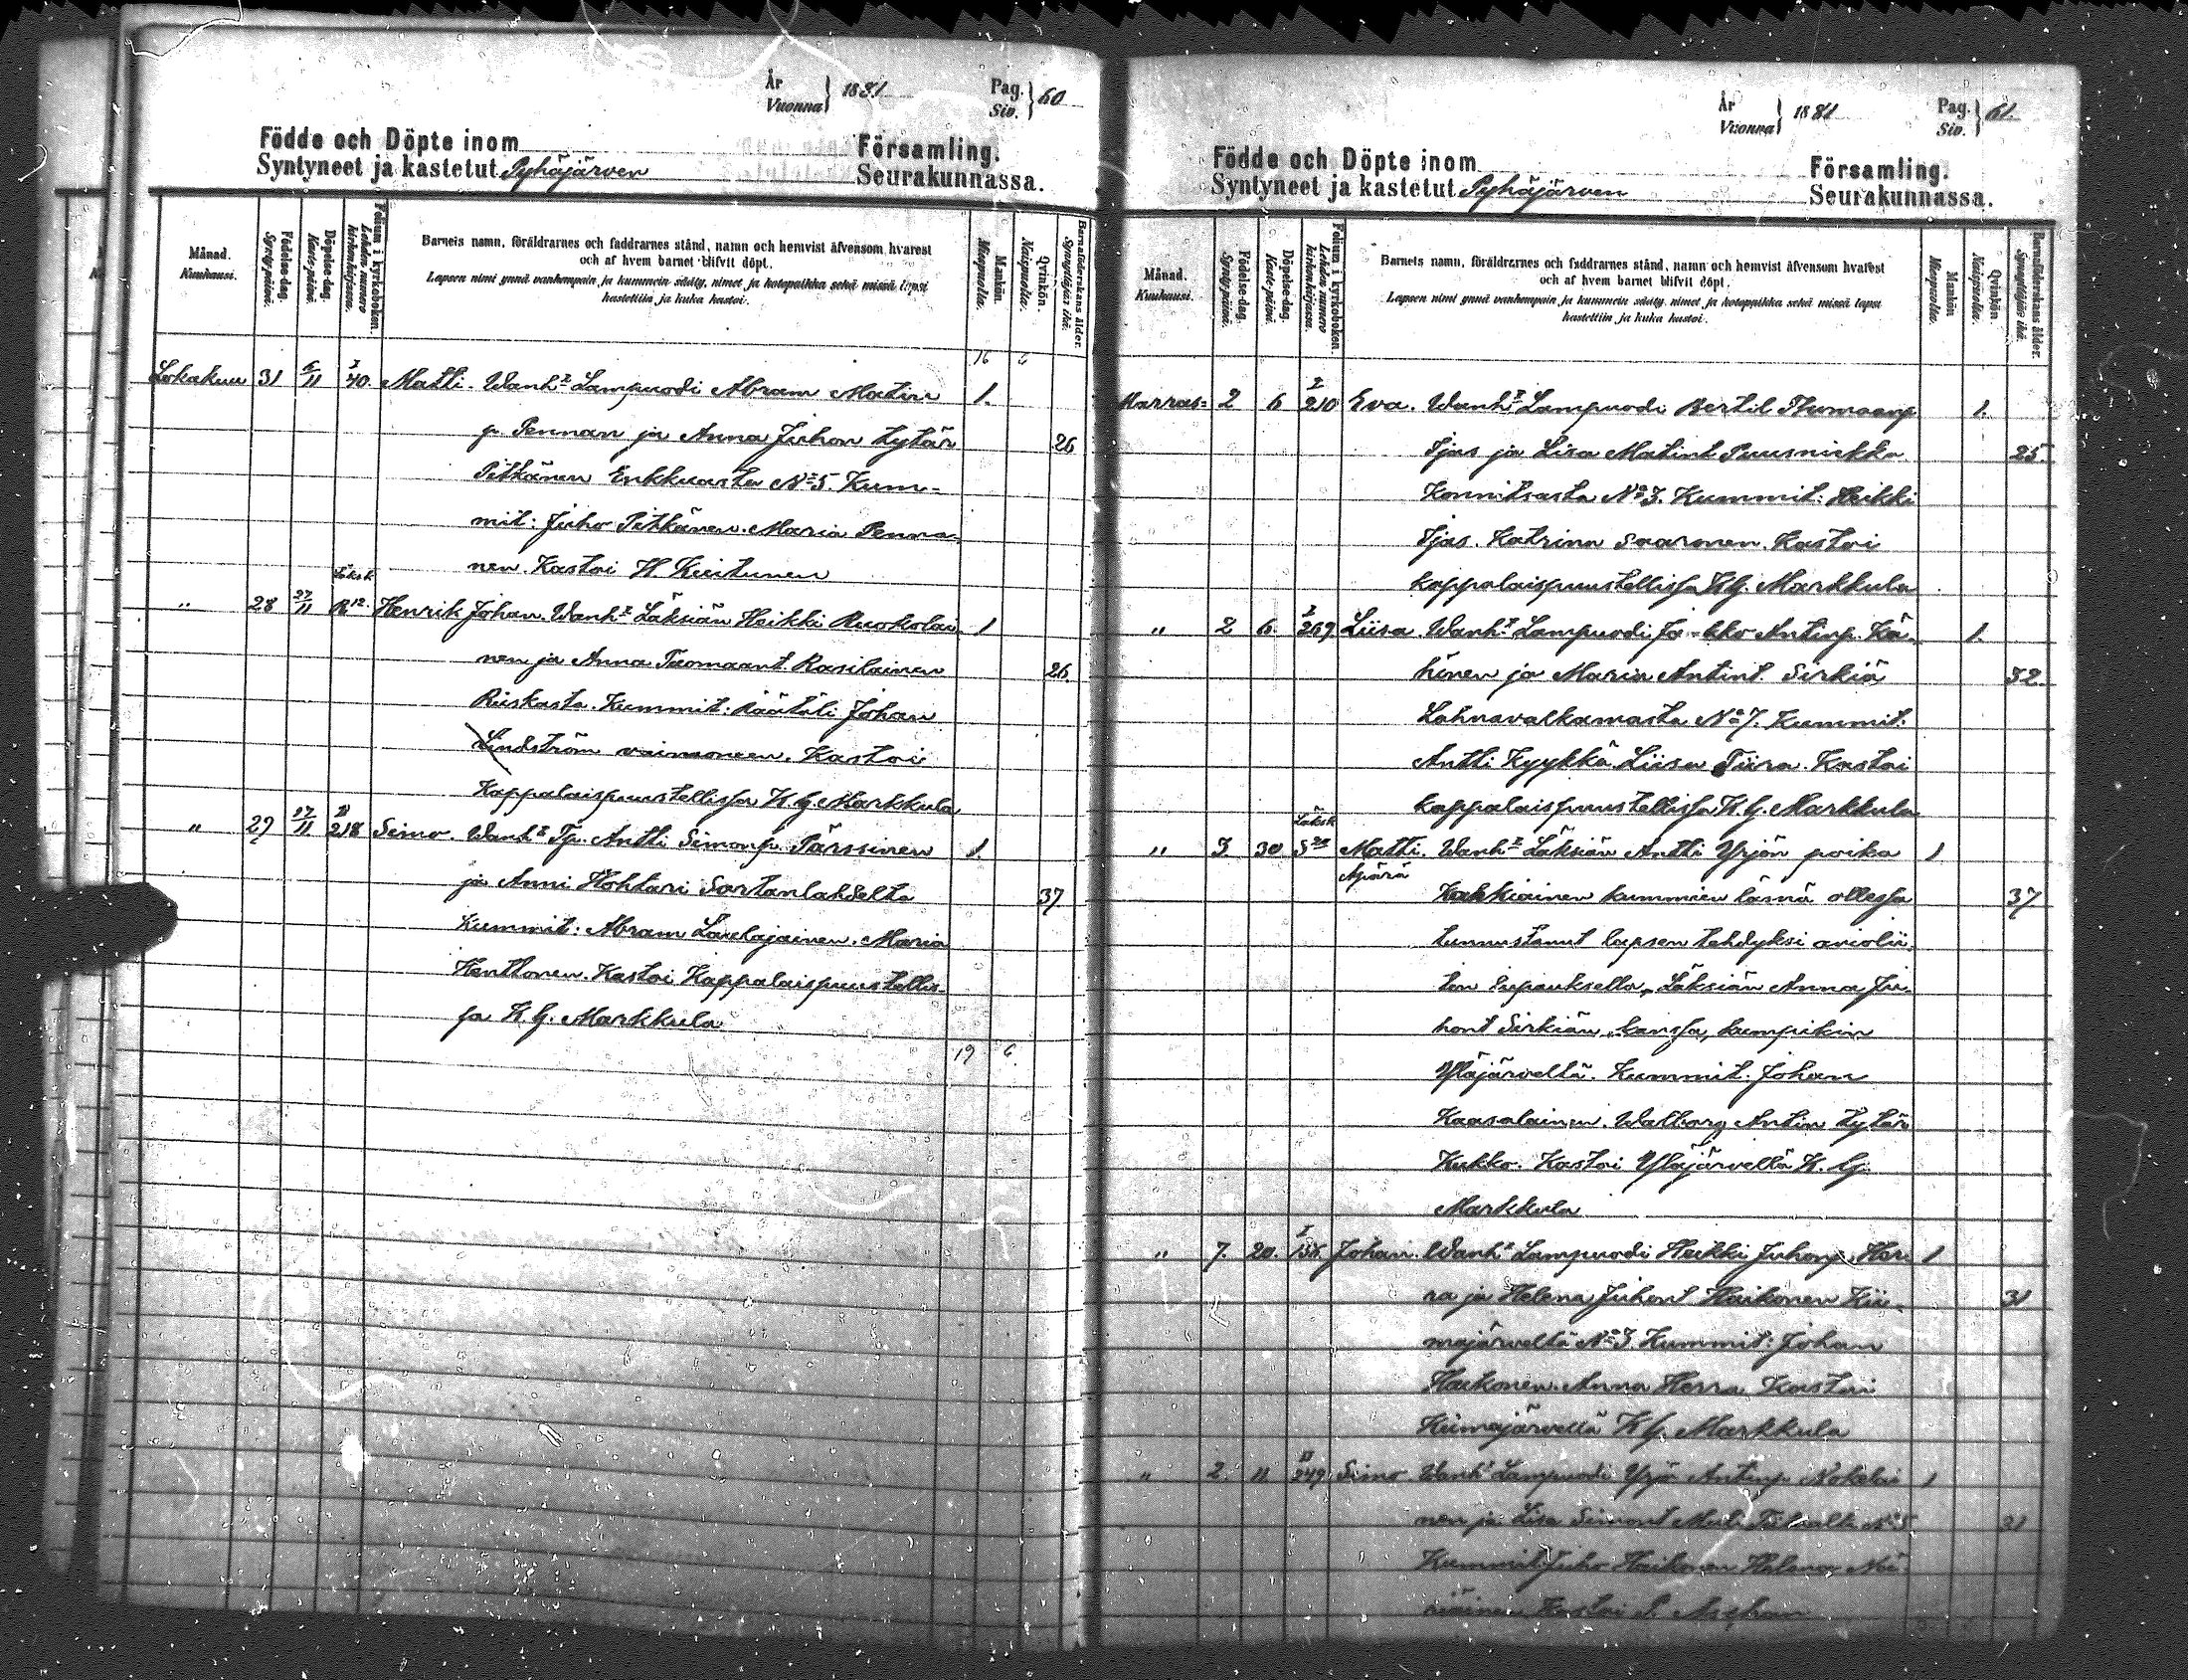 År
Vuonna } 1881 Pag.
Siv. } 60
Födde och Döpte inom Församling.
Syntyneet ja kastetut Pyhäjärven Seurakunnassa.
Månad.
Kuukausi.
Födelse-dag.
Synty-päivä.
Döpelse-dag.
Kaste-päivä.
Folium i kyrkoboken.
Lehden numero kirkonkirjassa.
Barnets namn, föräldrarnes och faddrarnes stånd, namn och hemvist äfvensom hvarest
och af hvem barnet blifvit döpt.
Lapsen nimi ynnä vanhempain ja kummein sääty, nimet ja kotopaikka sekä missä lapsi
kastettiin ja kuka kastoi.
Mankön.
Miespuolta.
Qvinkön.
Naispuolta.
Barnaföderskans ålder.
Synnyttäjän ikä.
16 6
Lokakuu 31 6/11 I 40. Matti. Wanht Lampuodi Abram Matin 1.
p. Pennan ja Anna Juhon tytär 26
Pitkänen Enkkuasta No 5. Kum-
mit: Juho Pitkänen. Maria Penna-
nen. Kastoi H. Kuitunen
" 28 27/11 Läksk R12. Henrik Johan. Wanht Läksiän Heikki Ruokolai- 1
nen ja Anna Tuomaant. Rasilainen 26.
Riiskasta. Kummit: Räätäli Johan
Lindström vaimoneen. Kastoi
Kappalaispuustellissa K. G. Markkula
" 29 27/11 II 218 Simo. Wanht Tp. Antti Simonp. Pärssinen 1.
ja Anni Hohtari Sortanlahdelta 37
Kummit: Abram Laulajainen. Maria
Henttonen. Kastoi Kappalaispuustellis-
sa K. G. Markkula
19 6
År
Vuonna } 1881 Pag.
Siv. } 61.
Födde och Döpte inom Församling.
Syntyneet ja kastetut Pyhäjärven Seurakunnassa.
Månad.
Kuukausi.
Födelse-dag.
Synty-päivä.
Döpelse-dag.
Kaste-päivä.
Folium i kyrkoboken.
Lehden numero kirkonkirjassa.
Barnets namn, föräldrarnes och faddrarnes stånd, namn och hemvist äfvensom hvarest
och af hvem barnet blifvit döpt.
Lapsen nimi ynnä vanhempain ja kummein sääty, nimet ja kotopaikka sekä missä lapsi
kastettiin ja kuka kastoi.
Mankön
Miespuolta.
Qvinkön
Naispuolta.
Barnaföderskans ålder.
Synnyttäjän ikä.
Marras= 2 6 I 210 Eva. Wanht Lampuodi Bertil Thomaanp 1.
Ijas ja Lisa Matint. Puusniekka 25.
Konnitsasta No 3. Kummit: Heikki
Ijas. Katrina Saaronen. Kastoi
kappalaispuustellissa K. G. Markkula
" 2 6. I 269 Liisa. Wanht Lampuodi Jaakko Antinp. Kä- 1.
hönen ja Maria Antint. Sirkiä 32.
Lahnavalkamasta No 7. Kummit:
Antti Kyykkä Liisa Tiira. Kastoi
kappalaispuustellissa K. G. Markkula
" 3. 30 Läksk S Matti. Wanht Läksiän Antti Yrjön poika 1
Äpärä
Kaekkiainen kummien läsnä ollessa 37
tunnustanut lapsen tehdyksi aviolii-
ton lupauksella, Läksiän Anna Ju-
hont Sirkiän kanssa, kumpikin
Yläjärveltä. Kummit: Johan
Kaasalainen. Walborg Antin tytär
Kukko. Kastoi Yläjärvellä K. G.
Markkula
" 7. 20. I 138. Johan. Wanht Lampuodi Heikki Juhonp. Her- 1
ra ja Helena Juhont. Haikonen Kii- 31
majärveltä No 3. Kummit: Johan
Haikonen. Anna Herra. Kastoi
Kiimajärvellä K G. Markkula
" 2. 11 II 249 Simo Wanht Lampuodi Yrjö Antinp Kokolai 1
nen ja Lisa Simont No 5 31
Kummit: Juho Haikonen Helena
Kastoi